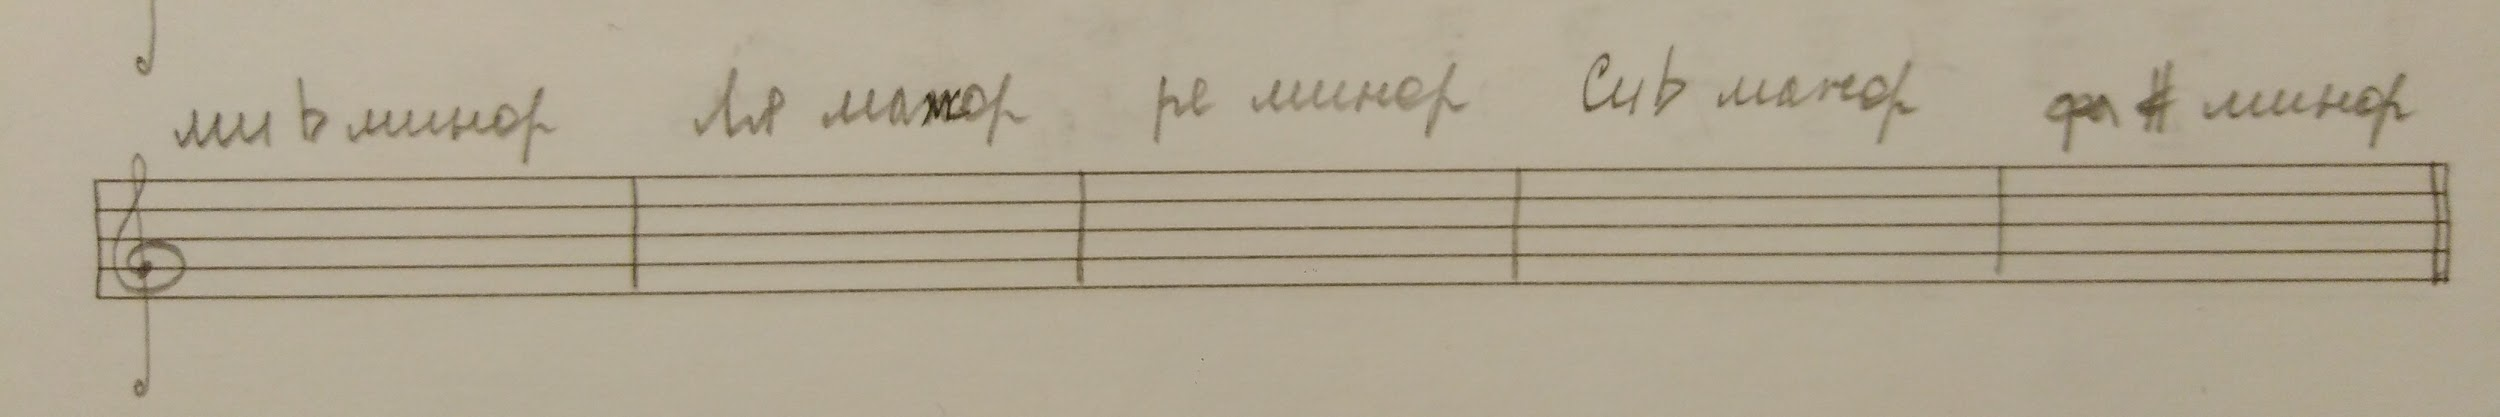 ми ♭ минор Ля мажор ре минор Си♭ мажор фа # минор